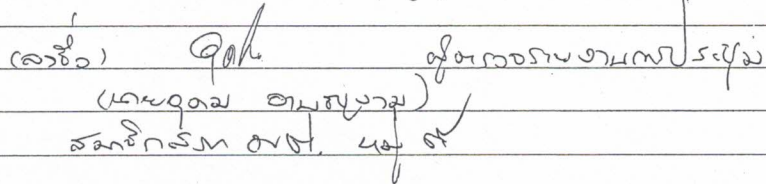 (ลงชื่อ) อุดม ผู้ตรวจรายงานการประชุม
(นายอุดม งาม)
สมาชิกสภา อบต. หมู่ ๙